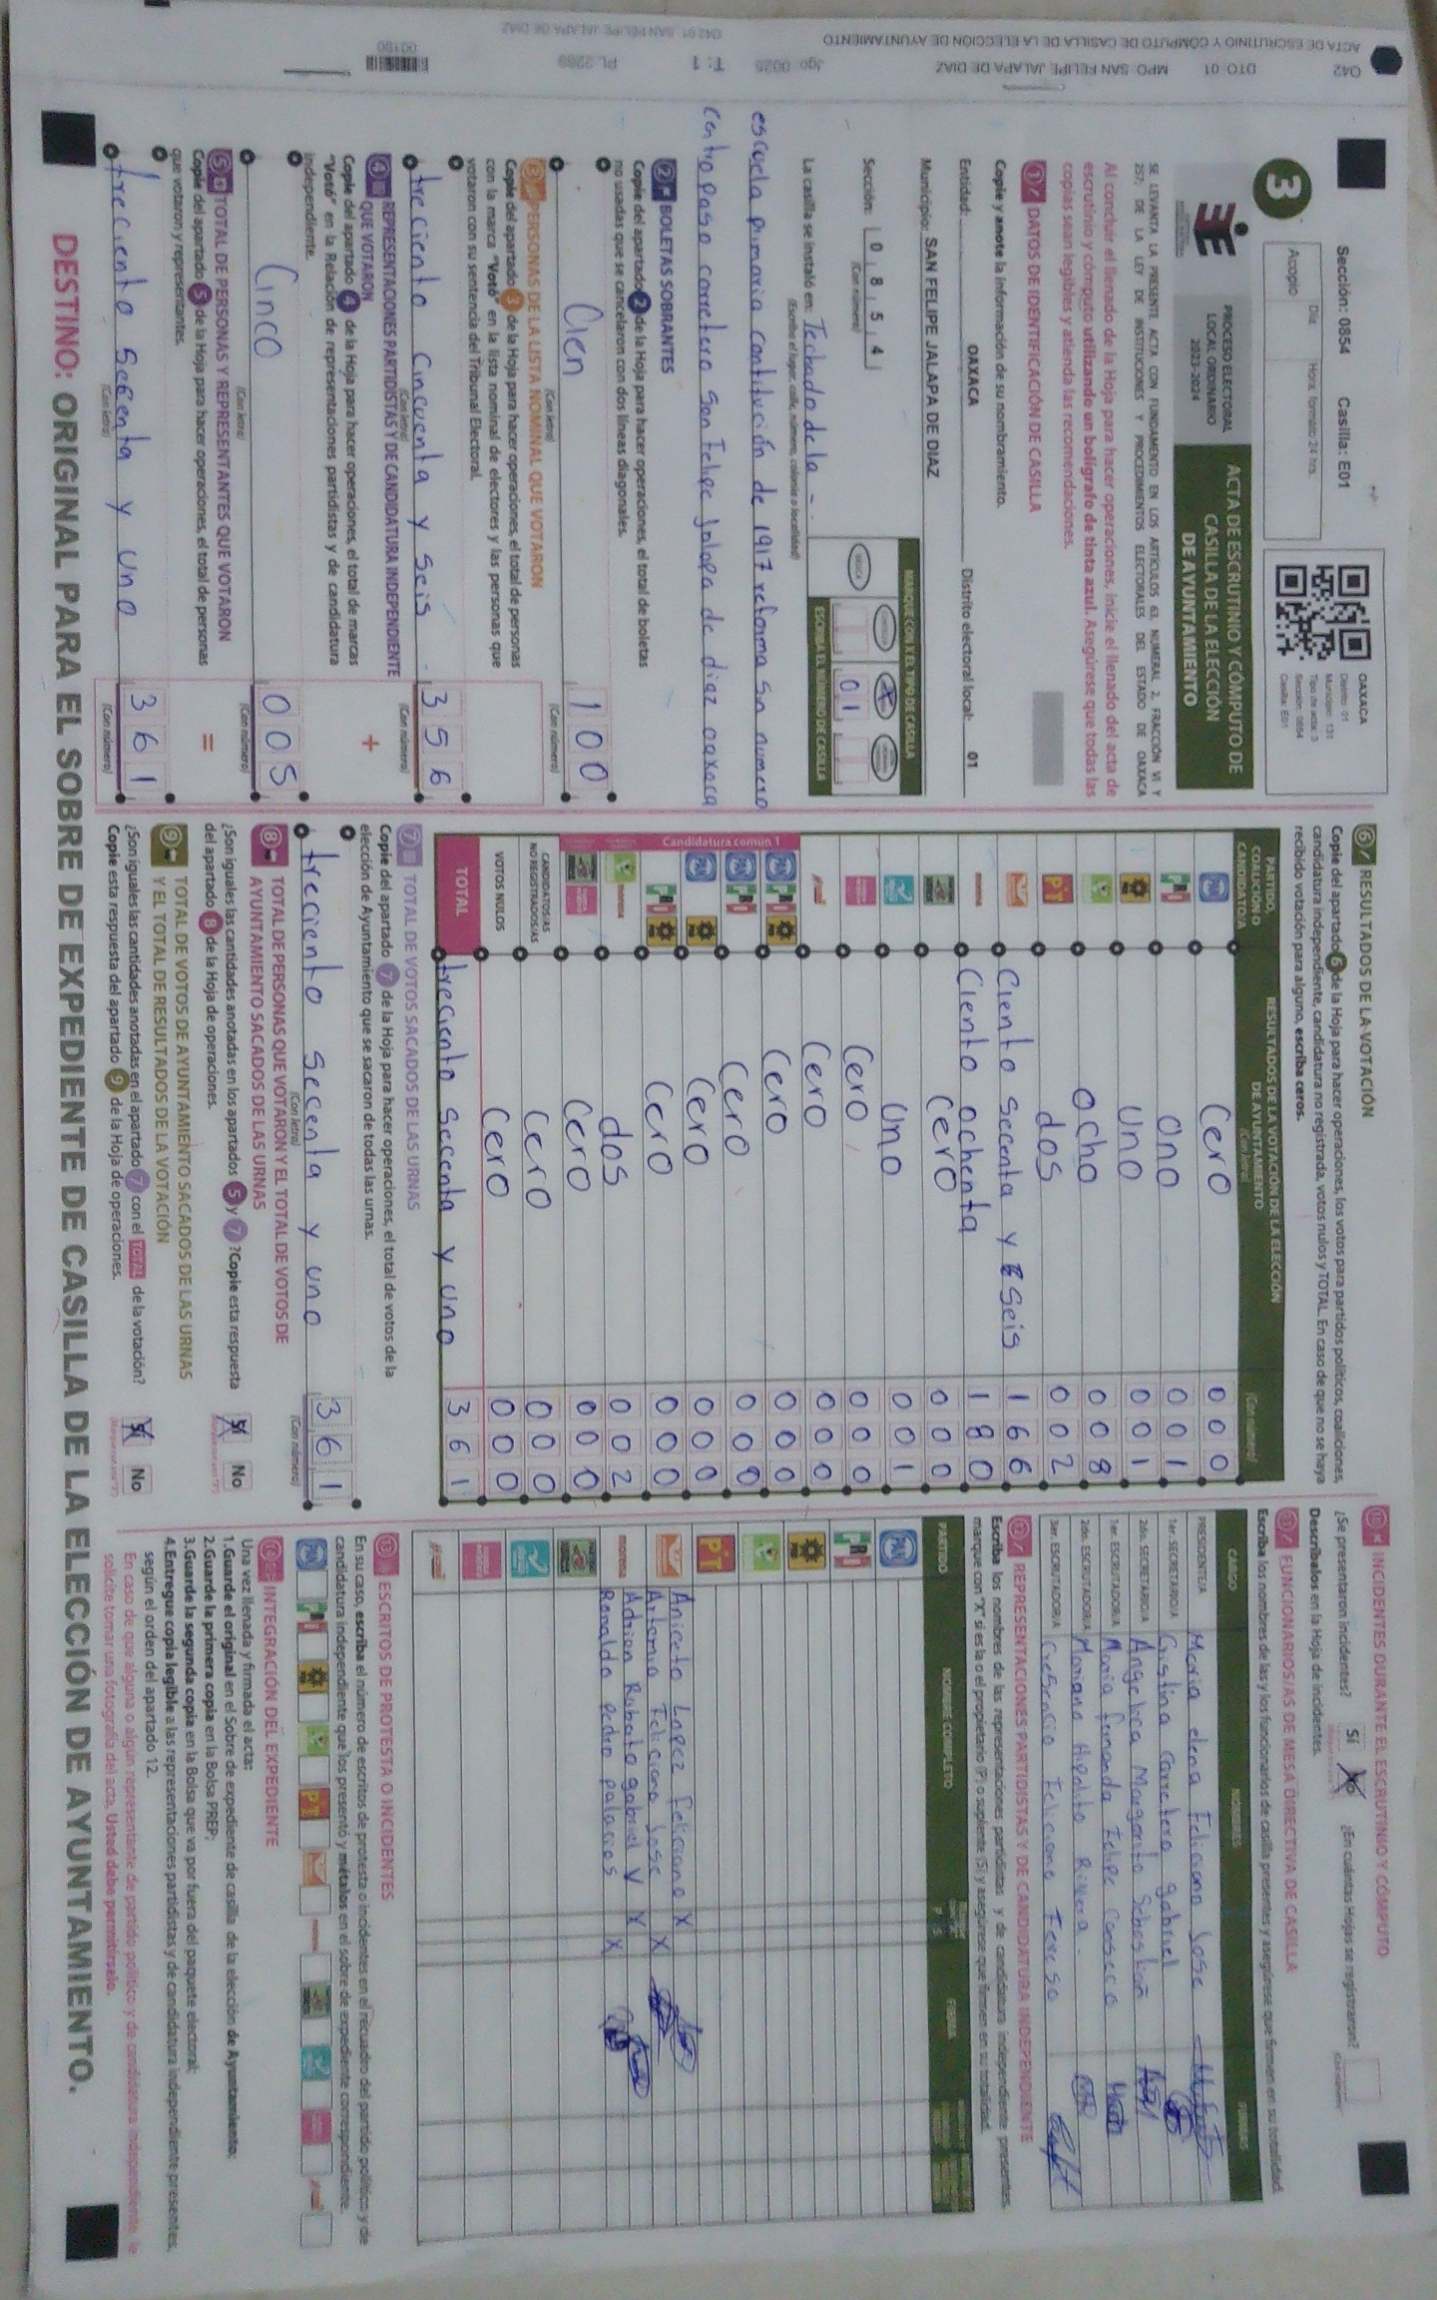 Sección: 0854 Casilla: E01
Día: Hora: formato 24 hrs.
Acopio
OAXACA
Distrito: 01
Municipio: 131
Tipo de acta: 3
Sección: 0854
Casilla: E01
3
PROCESO ELECTORAL
LOCAL ORDINARIO
2023-2024
ACTA DE ESCRUTINIO Y CÓMPUTO DE
CASILLA DE LA ELECCIÓN
DE AYUNTAMIENTO
SE LEVANTA LA PRESENTE ACTA CON FUNDAMENTO EN LOS ARTÍCULOS 63, NUMERAL 2, FRACCIÓN VI Y
257; DE LA LEY DE INSTITUCIONES Y PROCEDIMIENTOS ELECTORALES DEL ESTADO DE OAXACA
Al concluir el llenado de la Hoja para hacer operaciones, inicie el llenado del acta de
escrutinio y cómputo utilizando un bolígrafo de tinta azul. Asegúrese que todas las
copias sean legibles y atienda las recomendaciones.
1 DATOS DE IDENTIFICACIÓN DE CASILLA
Copie y anote la información de su nombramiento.
Entidad: OAXACA Distrito electoral local: 01
Municipio: SAN FELIPE JALAPA DE DIAZ
Sección: 0 8 5 4
(Con número)
MARQUE CON X EL TIPO DE CASILLA
BÁSICA
01
ESCRIBA EL NÚMERO DE CASILLA
La casilla se instaló en: Techado de la -
(Escriba el lugar: calle, número, colonia o localidad)
escuela primaria contitución de 1917 reforma sn numero
centro paso carretera San Felipe Jalapa de diaz oaxaca
2 BOLETAS SOBRANTES
Copie del apartado 2 de la Hoja para hacer operaciones, el total de boletas
no usadas que se cancelaron con dos líneas diagonales.
Cien 100
(Con letra) (Con número)
3 PERSONAS DE LA LISTA NOMINAL QUE VOTARON
Copie del apartado 3 de la Hoja para hacer operaciones, el total de personas
con la marca "Votó" en la lista nominal de electores y las personas que
votaron con su sentencia del Tribunal Electoral.
treciento cincuenta y seis. 356
(Con letra) (Con número)
4 REPRESENTACIONES PARTIDISTAS Y DE CANDIDATURA INDEPENDIENTE
QUE VOTARON
+
Copie del apartado 4 de la Hoja para hacer operaciones, el total de marcas
"Votó" en la Relación de representaciones partidistas y de candidatura
independiente.
Cinco 005
(Con letra) (Con número)
5 TOTAL DE PERSONAS Y REPRESENTANTES QUE VOTARON
=
Copie del apartado 5 de la Hoja para hacer operaciones, el total de personas
que votaron y representantes.
treciento secenta y uno 361
(Con letra) (Con número)
6 RESULTADOS DE LA VOTACIÓN
Copie del apartado 6 de la Hoja para hacer operaciones, los votos para partidos políticos, coaliciones,
candidatura independiente, candidatura no registrada, votos nulos y TOTAL. En caso de que no se haya
recibido votación para alguno, escriba ceros.
PARTIDO,
COALICIÓN O
CANDIDATO/A
RESULTADOS DE LA VOTACIÓN DE LA ELECCIÓN
DE AYUNTAMIENTO
(Con letra) (Con número)
PAN Cero 000
PRI Uno 001
Uno 001
ocho 008
PT dos 002
Ciento secenta y seis 166
morena Ciento ochenta 180
Cero 000
Uno 001
Cero 000
Cero 000
Candidatura común 1
PAN PRI Cero 000
PAN PRI Cero 000
PAN Cero 000
PRI Cero 000
morena dos 002
Cero 000
CANDIDATOS/AS
NO REGISTRADOS/AS Cero 000
VOTOS NULOS Cero 000
TOTAL treciento secenta y uno 361
7 TOTAL DE VOTOS SACADOS DE LAS URNAS
Copie del apartado 7 de la Hoja para hacer operaciones, el total de votos de la
elección de Ayuntamiento que se sacaron de todas las urnas.
treciento secenta y uno 361
(Con letra) (Con número)
8 TOTAL DE PERSONAS QUE VOTARON Y EL TOTAL DE VOTOS DE
AYUNTAMIENTO SACADOS DE LAS URNAS
¿Son iguales las cantidades anotadas en los apartados 5 y 7 ? Copie esta respuesta
del apartado 8 de la Hoja de operaciones.
Sí No
9 TOTAL DE VOTOS DE AYUNTAMIENTO SACADOS DE LAS URNAS
Y EL TOTAL DE RESULTADOS DE LA VOTACIÓN
¿Son iguales las cantidades anotadas en el apartado 7 con el TOTAL de la votación?
Copie esta respuesta del apartado 9 de la Hoja de operaciones.
Sí No
10 INCIDENTES DURANTE EL ESCRUTINIO Y CÓMPUTO
¿Se presentaron incidentes? Sí No ¿En cuántas Hojas se registraron?
Descríbalos en la Hoja de incidentes.
11 FUNCIONARIOS/AS DE MESA DIRECTIVA DE CASILLA
Escriba los nombres de las y los funcionarios de casilla presentes y asegúrese que firmen en su totalidad.
CARGO NOMBRES FIRMAS
PRESIDENTE/A Maria elena Feliciano Jose
1er. SECRETARIO/A Cristina carretero gabriel
2do. SECRETARIO/A Angelica Margarito Sebastian
1er. ESCRUTADOR/A Maria fernanda Felipe Canseco
2do. ESCRUTADOR/A Mariana Hipolito Rivera.
3er. ESCRUTADOR/A Crescencio Feliciano Teresa
12 REPRESENTACIONES PARTIDISTAS Y DE CANDIDATURA INDEPENDIENTE
Escriba los nombres de las representaciones partidistas y de candidatura independiente presentes,
marque con "X" si es la o el propietario (P) o suplente (S) y asegúrese que firmen en su totalidad.
PARTIDO NOMBRE COMPLETO P S FIRMA
PAN
PRI
PT
Aniceto Lopez feliciano X
Antonia Feliciano Jose X
morena Adrian Rabato gabriel V X
Renaldo pedro palacios X
13 ESCRITOS DE PROTESTA O INCIDENTES
En su caso, escriba el número de escritos de protesta o incidentes en el recuadro del partido político y de
candidatura independiente que los presentó y métalos en el sobre de expediente correspondiente.
PAN PRI PT
14 INTEGRACIÓN DEL EXPEDIENTE
Una vez llenada y firmada el acta:
1. Guarde el original en el Sobre de expediente de casilla de la elección de Ayuntamiento;
2. Guarde la primera copia en la Bolsa PREP;
3. Guarde la segunda copia en la Bolsa que va por fuera del paquete electoral;
4. Entregue copia legible a las representaciones partidistas y de candidatura independiente presentes,
según el orden del apartado 12.
En caso de que alguna o algún representante de partido político y de candidatura independiente, le
solicite tomar una fotografía del acta, Usted debe permitírselo.
DESTINO: ORIGINAL PARA EL SOBRE DE EXPEDIENTE DE CASILLA DE LA ELECCIÓN DE AYUNTAMIENTO.
O42 DTO: 01 MPO: SAN FELIPE JALAPA DE DIAZ Jgo: 0025 T: 1 PL: 2289
ACTA DE ESCRUTINIO Y CÓMPUTO DE CASILLA DE LA ELECCIÓN DE AYUNTAMIENTO